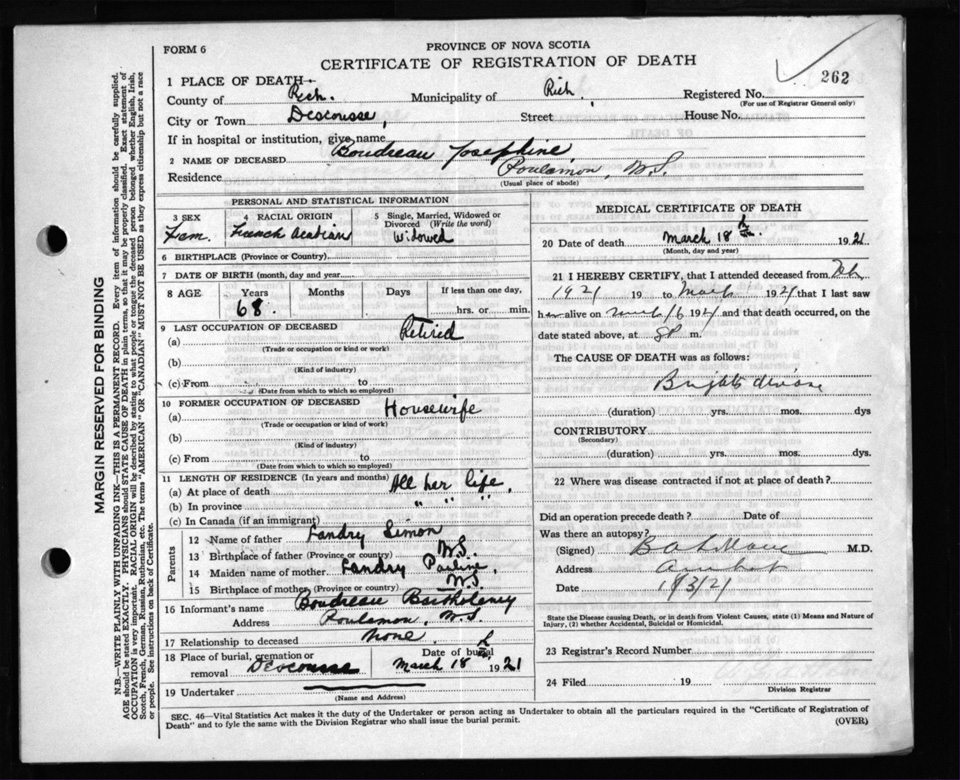 FORM 6
PROVINCE OF NOVA SCOTIA
CERTIFICATE OF REGISTRATION OF DEATH
262
1 PLACE OF DEATH—
County of Rich. Municipality of Rich, Registered No.
(For use of Registrar General only)
City or Town Descousse Street House No.
If in hospital or institution, give name
2 NAME OF DECEASED Boudreau Josephine,
Residence Poulamon, N.S.
(Usual place of abode)
PERSONAL AND STATISTICAL INFORMATION
3 SEX Fem. 4 RACIAL ORIGIN French Acadian 5 Single, Married, Widowed or Divorced (Write the word) Widowed
6 BIRTHPLACE (Province or Country)
7 DATE OF BIRTH (month, day and year
8 AGE Years Months Days If less than one day,
68. hrs. or min.
9 LAST OCCUPATION OF DECEASED
(a) Retired
(Trade or occupation or kind or work)
(b)
(Kind of industry)
(c) From to
(Date from which to which so employed)
10 FORMER OCCUPATION OF DECEASED
(a) Housewife
(Trade or occupation or kind of work)
(b)
(Kind of industry)
(c) From to
(Date from which to which so employed)
11 LENGTH OF RESIDENCE (In years and months)
(a) At place of death All her life,
(b) In province " " "
(c) In Canada (if an immigrant)
Parents
12 Name of father Landry Simon
13 Birthplace of father (Province or country) N.S.
14 Maiden name of mother Landry Pauline
15 Birthplace of mother (Province or country) N.S.
16 Informant's name Boudreau
Address Poulamon, N.S.
17 Relationship to deceased None.
18 Place of burial, cremation or removal Descousse Date of burial March 18 1921
19 Undertaker
(Name and Address)
MEDICAL CERTIFICATE OF DEATH
20 Date of death March 18 th. 1921
(Month, day and year)
21 I HEREBY CERTIFY, that I attended deceased from Feb
1921 19 to March 1921 that I last saw
h alive on 1921 and that death occurred, on
date stated above, at 8P m.
The CAUSE OF DEATH was as follows:
Brights disease
(duration) yrs. mos. dys
CONTRIBUTORY
(Secondary)
(duration) yrs. mos. dys.
22 Where was disease contracted if not at place of death?
Did an operation precede death? Date of
Was there an autopsy?
(Signed) M.D.
Address Arichat
Date
State the Disease causing Death, or in death from Violent Causes, state (1) Means and Nature of Injury, (2) whether Accidental, Suicidal or Homicidal.
23 Registrar's Record Number
24 Filed 19
Division Registrar
SEC. 46—Vital Statistics Act makes it the duty of the Undertaker or person acting as Undertaker to obtain all the particulars required in the "Certificate of Registration of
Death" and to fyle the same with the Division Registrar who shall issue the burial permit.
(OVER)
MARGIN RESERVED FOR BINDING
N.B.—WRITE PLAINLY WITH UNFADING INK—THIS IS A PERMANENT RECORD. Every item of information should be carefully supplied.
AGE should be stated EXACTLY. PHYSICIANS should STATE CAUSE OF DEATH in plain terms, so that it may be properly classified. Exact statement of
OCCUPATION is very important. RACIAL ORIGIN will be described by stating to what people or tongue the deceased person belonged whether English, Irish,
Scotch, French, German, Russian, Ruthenian, etc. The terms "AMERICAN" OR "CANADIAN" MUST NOT BE USED as they express citizenship but not a race
or people. See instructions on back of Certificate.